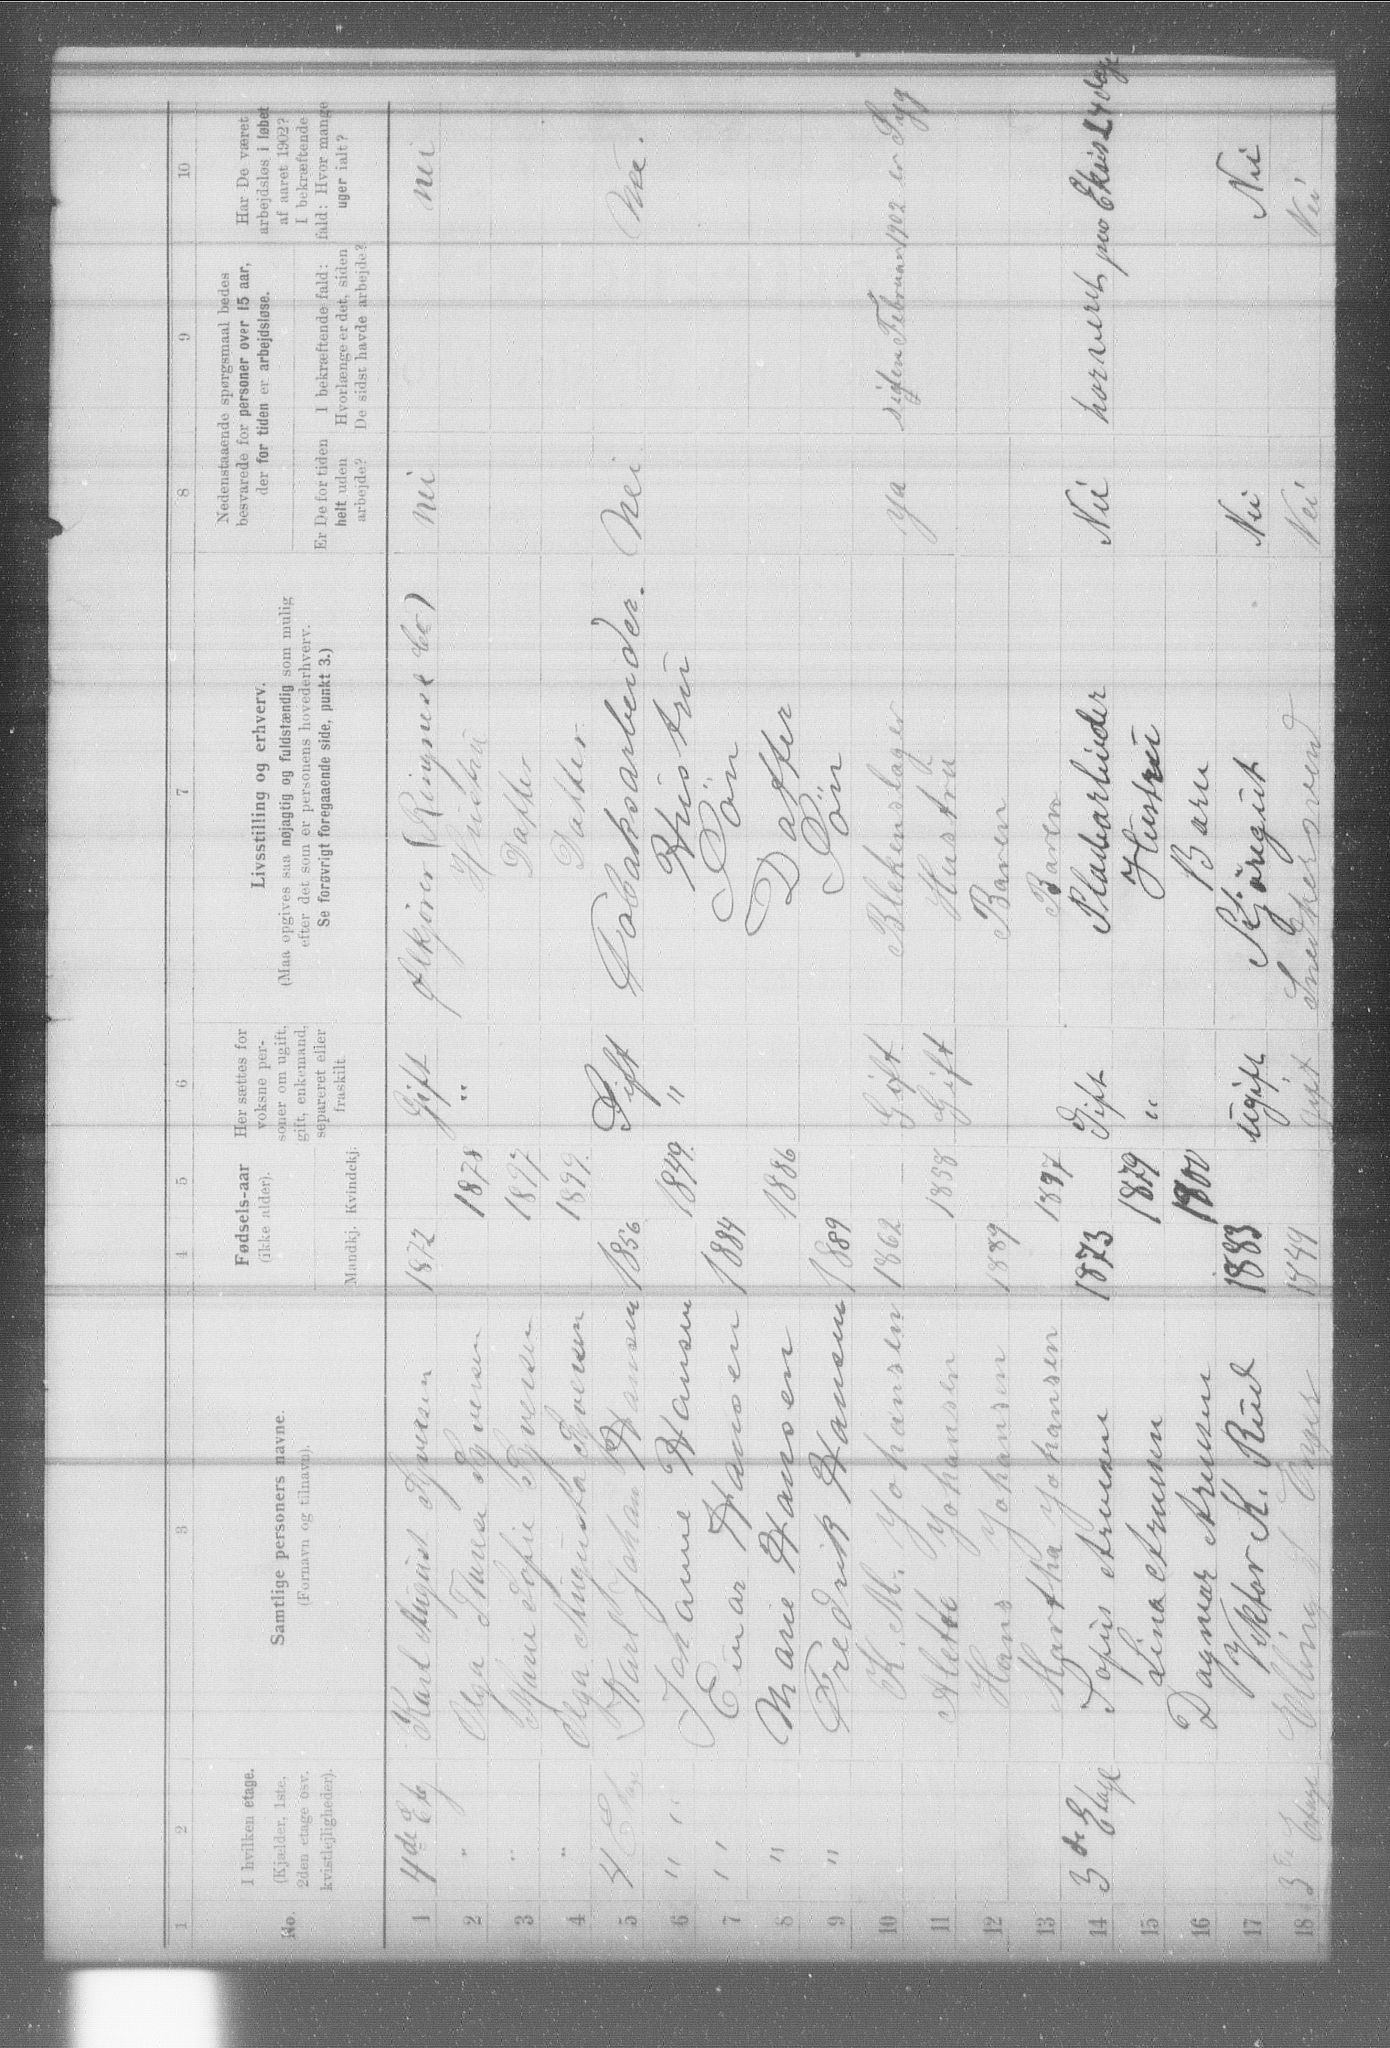 1 2 3 4 5 6 7 8 9 10
No.
I hvilken etage.
(Kjælder, 1ste,
2den etage osv.
kvistlejligheder).
Samtlige personers navne.
(Fornavn og tilnavn).
Fødsels-aar
(ikke alder).
Mandkj. Kvindekj.
Her sættes for
voksne per-
soner om ugift,
gift, enkemand,
separeret eller
fraskilt
Livsstilling og erhverv.
(Maa opgives saa nøjagtig og fuldstændig som mulig
efter det som er personens hovederhverv.
Se forøvrigt foregaaende side, punkt 3.)
Nedenstaaende spørgsmaal bedes
besvarede for personer over 15 aar,
der for tiden er arbejdsløse.
Er De for tiden
helt uden
arbejde?
I bekræftende fald:
Hvorlænge er det, siden
De sidst havde arbejde?
Har De været
arbejdsløs i løbet
af aaret 1902?
I bekræftende
fald: Hvor mange
uger ialt?
1 4de Etg Karl August Iversen 1872 Gift Ølkjører (Ringnes &co) nei nei
2 " Olga Iversen 1878 " Hustru
3 " Sofie Iversen 1897 Datter
4 " Olga Augusta Iversen 1899. Datter
5 4 Etag Karl Johan Hansen 1856 Gift Tobaksarbeider. Nei
6 " " Johanne Hansen 1849. " Hustru
7 " Einar Hansen 1884 Sön
8 " Marie Hansen 1886 Datter
9 " Fredrik Hansen 1889 Sön
10 K. M. Johansen 1862 Gift Blekenslager ya siden Februar 1902 er Syg
11 Alette Johansen 1858 Gift Hustru
12 Hans Johansen 1889 Baren
13 Martha Johansen 1897 Baren
14 3de Etage Arnesen 1873 Gift Pladsarbeider Nei
15 Lina Arnesen 1879 " Hustru
16 Dagmar Arnesen 1900 Barn
17 Viktor K. Rud 1883 ugift Kjöregut Nei Nei
18 3 Etage 1849 gift Snedkersvend Nei Nei